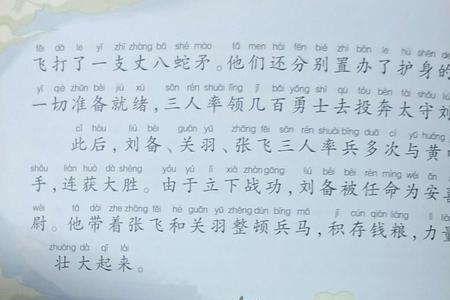 fēi dǎ le yī zhī zhàng bā shé máo tā men hái fēn bié zhì bàn le hù shēn de
飞打了一支丈八蛇矛。他们还分别置办了护身的
yī qiè zhǔn bèi jiù xù sān rén shuài lǐng jǐ bǎi yǒng shì qù tóu bèn tài shǒu liú
一切准备就绪，三人率领几百勇士去投奔太守刘
cǐ hòu liú bèi guān yǔ zhāng fēi sān rén shuài bīng duō cì yǔ huáng
此后，刘备、关羽、张飞三人率兵多次与黄
shǒu lián huò dà shèng yóu yú lì xià zhàn gōng liú bèi bèi rèn mìng wéi ān
手，连获大胜。由于立下战功，刘备被任命为安
wèi tā dài zhe zhāng fēi hé guān yǔ zhěng dùn bīng mǎ jī cún qián liáng lì
尉。他带着张飞和关羽整顿兵马，积存钱粮，力量
zhuàng dà qǐ lái
壮大起来。